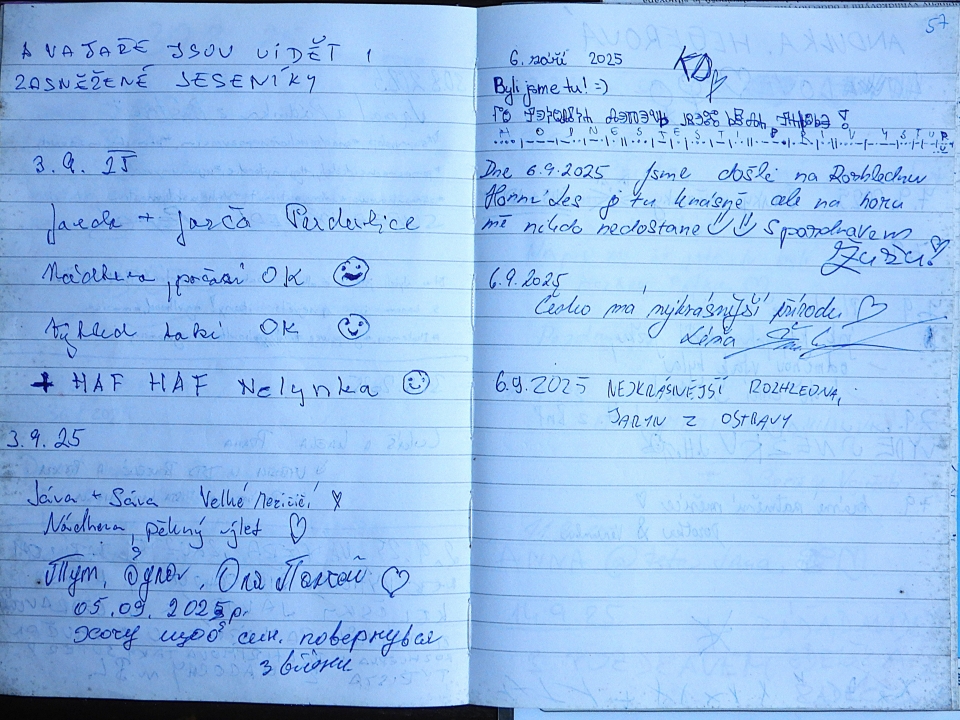 A VAJAŘE JSOU VIDĚT!
ZASNĚŽENÉ JESENÍKY
3.9.25
Jarda + Jarča Pardubice
Nádhera, počasí OK
Výhled také OK
+ HAF HAF Nelynka
3.9.25
Jáva + Sáva Velké Meziříčí
Nádhera, pěkný výlet
Тут, був, Оля
05.09.2025р.
Хочу щоб син. повернувся
з війни
57
6. září 2025
Byli jsme tu! =)
H O P N E S T E S T I P R I V Y S T U P U
Dne 6.9.2025 jsme došli na Rozhlednu
Horní Les je tu krásně ale na horu
mě nikdo nedostane S pozdravem
Zuzu!
6.9.2025
Česko má nejkrásnější přírodu
Léna
6.9.2025 NEJKRÁSNĚJŠÍ ROZHLEDNA,
JARYN Z OSTRAVY